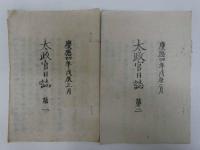 慶應四年戊辰二月
太政官日誌
第一
慶應四年戊辰二月
太政官日誌
第二